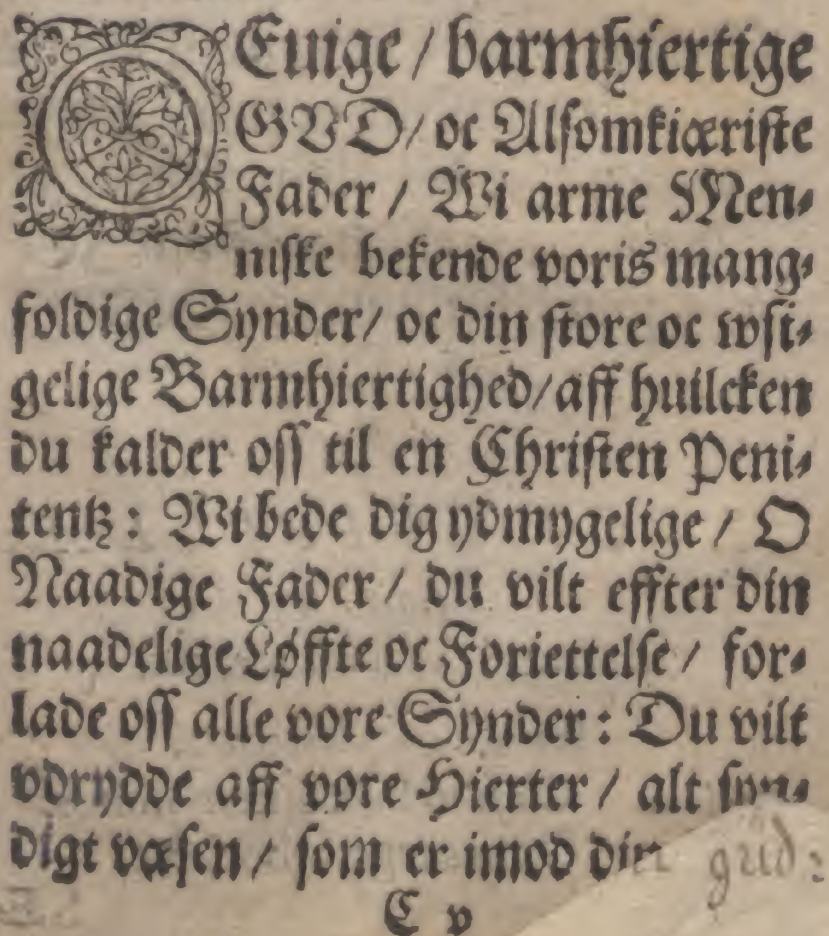 O Euige / barmhiertige
GVD / oc Alsomkiæriste
Fader / Wi arme Men⸗
niske bekende voris mang⸗
foldige Synder / oc din store oc wsi⸗
gelige Barmhiertighed / aff huilcken
du kalder oss til en Christen Peni⸗
tentz : Wi bede dig ydmygelige / O
Naadige Fader / du vilt effter din
naadelige Løffte oc Foriettelse / for⸗
lade oss alle vore Synder : Du vilt
vdrydde aff vore Hierter / alt syn⸗
digt væsen / som er imod din gud:
C v